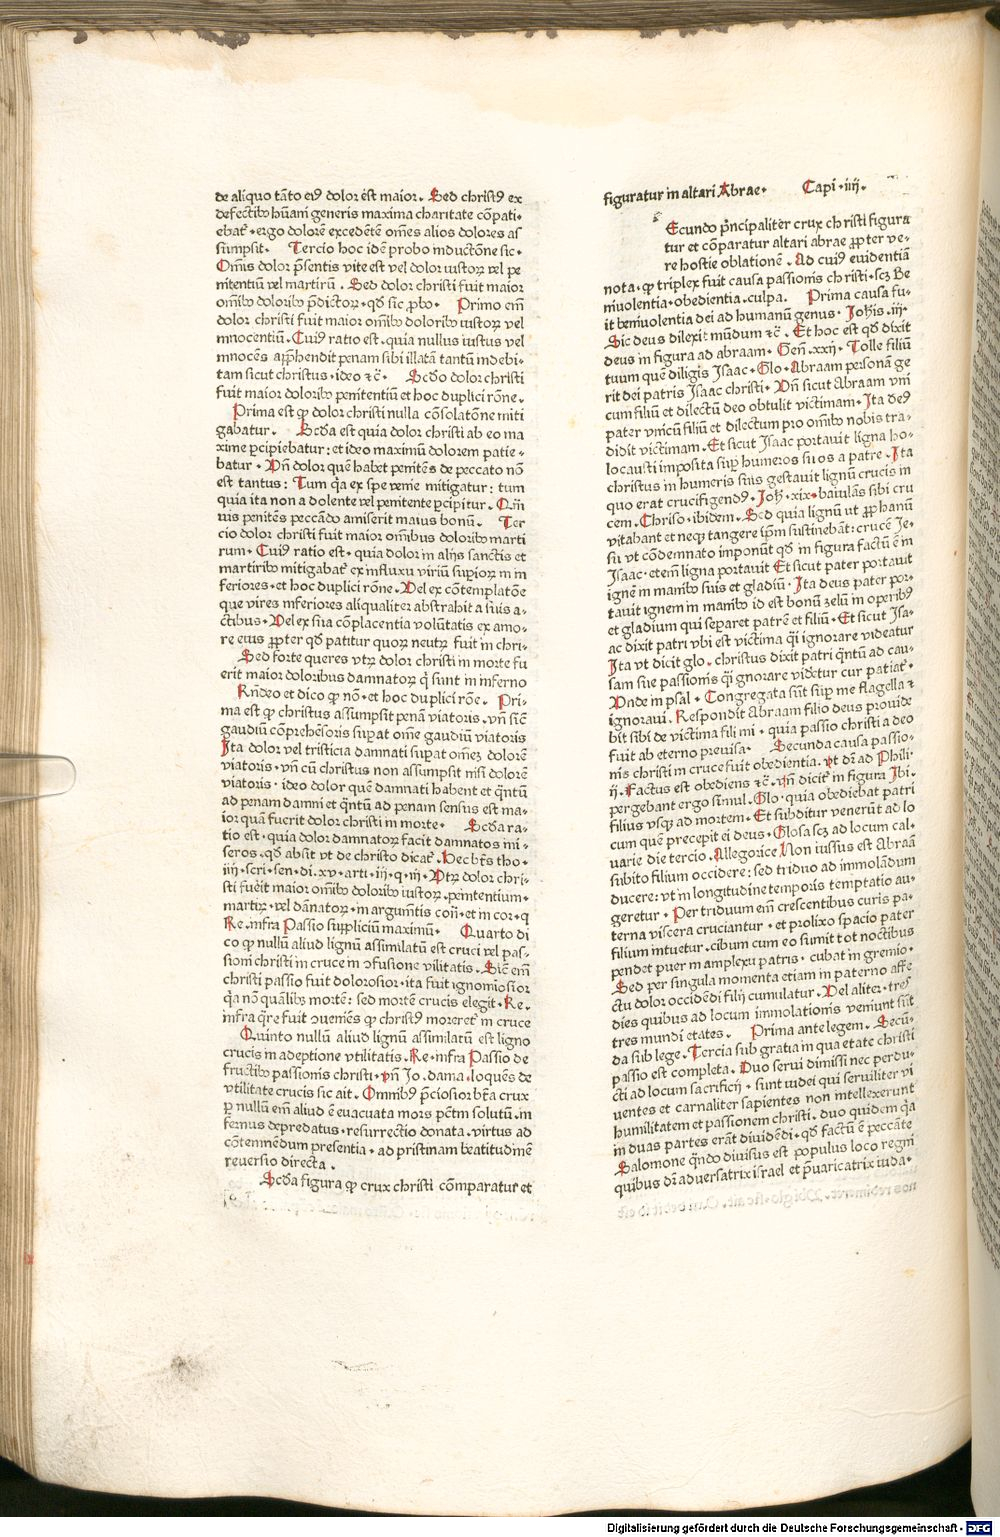 de aliquo tãto eiꝰ dolor ẽst maior. Sed christꝰ ex
defectibꝰ hũani generis maxima charitate cõpati⸗
ebat᷑. ergo dolorẽ excedẽtẽ om̃es alios dolores as
sumpsit. Tercio hoc idẽ probo inductõne sic.
Om̃is dolor p̃sentis vite est vel dolor iustoꝝ vel pe
nitentiũ vel martirũ. Sed dolor christi fuit maior
omibꝰ doloribꝰ p̃dictoꝝ. qđ sic ꝓbo. Primo em̃
dolor christi fuit maior omibꝰ doloribꝰ iustoꝝ vel
innocentiũ. Cuiꝰ ratio est. quia nullus iustus vel
innocẽs app̃hendit penam sibi illatã tantũ indebi⸗
tam sicut christus. ideo ⁊c̃. Scđo dolor christi
fuit maior doloribꝰ penitentiũ et hoc duplici rõne.
Prima est ꝙ dolor christi nulla cõsolatõne miti
gabatur. Scđa est quia dolor christi ab eo ma
xime ꝑcipiebatur: et ideo maximũ dolorem patie⸗
batur. Vñ dolor quẽ habet penitẽs de peccato nõ
est tantus: Tum q̃a ex spe venie mitigatur: tum
quia ita non a dolente vel penitente ꝑcipitur. Qm̃
uis penitẽs peccãdo amiserit maius bonũ. Ter
cio dolor christi fuit maior omibus doloribꝰ marti
rum. Cuiꝰ ratio est. quia dolor in alijs sanctis et
martiribꝰ mitigabat᷑ ex influxu viriũ supioꝝ in in
feriores. et hoc duplici rõne. Vel ex cõtemplatõe
que vires inferiores aliqualiter abstrahit a suis a⸗
ctibus. Vel ex sua cõplacentia volũtatis ex amo⸗
re eius ꝓpter qđ patitur quoꝝ neutꝝ fuit in chri⸗
Sed forte queres vtꝝ dolor christi in morte fu
erit maior doloribus damnatoꝝ q̃ sunt in inferno
Rñdeo et dico ꝙ nõ. et hoc duplici rõe. Pri⸗
ma est ꝙ christus assumpsit penã viatoris. vñ sicẽ
gaudiũ cõprehẽsoris supat om̃e gaudiũ viatoris
Ita dolor vel tristicia damnati supat omẽꝫ dolorẽ
viatoris. vñ cũ christus non assumpsit nisi dolorẽ
viatoris. ideo dolor quẽ damnati habent et q̃ntũ
ad penam damni et q̃ntũ ad penam sensus est ma⸗
ior quã fuerit dolor christi in morte. Scđa ra⸗
tio est. quia dolor damnatoꝝ facit damnatos mi⸗
seros. qđ absit vt de christo dicat᷑. Hec btũs tho.
iiij. scri. sen. di. xv. arti. iij. q. iij. Vtꝝ dolor chri⸗
sti fuẽit maior omibꝰ doloribꝰ iustoꝝ. penitentium.
martiꝝ. vel dãnatoꝝ. in argumẽtis coñ. et in cor. q
Re. infra Passio suppliciũ maximũ. Quarto di
co ꝙ nullũ aliud lignũ assimilatũ est cruci vel pas⸗
sioni christi in cruce in ↄfusione vilitatis. Sicẽ em̃
christi passio fuit dolorosior. ita fuit ignominiosior
q̃a nõ quãlibꝫ mortẽ: sed mortẽ crucis elegit. Re.
infra q̃re fuit ↄueniẽs ꝙ christꝰ moreret᷑ in cruce
Quinto nullũ aliud lignũ assimilatũ est ligno
crucis in adeptione vtilitatis. Re. infra Passio de
fructibꝰ passionis christi. vñ Io. dama. loquẽs de
vtilitate crucis sic ait. Omnibꝰ p̃ciosior bt̃a crux
ꝑ nullũ em̃ aliud ẽ euacuata mors pctm̃ solutũ. in
fernus depredatus. resurrectio donata. virtus ad
cõtemnẽdum presentia. ad pristinam beatitudinẽ
reuersio directa.
Scđa figura ꝙ crux christi cõmparatur et
figuratur in altari Abrae. Capĩ. iiij.
Ecundo pñcipaliter crux christi figura
tur et cõparatur altari abrae ꝓpter ve⸗
re hostie oblationẽ. Ad cuiꝰ euidentiã
nota. ꝙ triplex fuit causa passionis christi. scꝫ Be
niuolentia. obedientia. culpa. Prima causa fu⸗
it beniuolentia dei ad humanũ genus. Iohis. iij.
Sic deus dilexit mũdum ⁊c̃. Et hoc est qđ dixit
deus in figura ad abraam. Geñ. xxij. Tolle filiũ
tuum quẽ diligis Isaac. Glo. Abraam personã ge
rit dei patris Isaac christi. Vñ sicut Abraam vni
cum filiũ et dilectũ deo obtulit victimam. Ita deꝰ
pater vnicũ filiũ et dilectum pro omibꝰ nobis tra⸗
didit victimam. Et sicut Isaac portauit ligna ho⸗
locausti imposita sup humeros suos a patre. Ita
christus in humeris suis gestauit lignũ crucis in
quo erat crucifigendꝰ. Ioh. xix. baiulãs sibi cru
cem. Chriso. ibidem. Sed quia lignũ ut ꝓphanũ
vitabant et neqꝫ tangere ipm̃ sustinebãt: crucẽ Ie⸗
su vt cõdemnato imponũt qđ in figura factũ ẽ in
Isaac. etem̃ ligna portauit Et sicut pater portauit
ignẽ in manibꝰ suis et gladiũ. Ita deus pater por⸗
tauit ignem in manibꝰ id est bonũ zelũ in operibꝰ
et gladium qui separet patrẽ et filiũ. Et sicut Isa⸗
ac dixit patri vbi est victima q̃i ignorare videatur
Ita vt dicit glo. christus dixit patri q̃ntũ ad cau⸗
sam sue passionis q̃i gnorare videtur cur patiat᷑.
Vnde in psal. Congregata sũt sup me flagella ⁊
ignoraui. Respondit Abraam filio deus prouide
bit sibi de victima fili mi. quia passio christi a deo
fuit ab eterno preuisa. Secunda causa passio⸗
nis christi in cruce fuit obedientia. vt dr̃ ad Phili.
ij. Factus est obediens ⁊c̃. vñ dicit᷑ in figura Ibi.
pergebant ergo simul. Glo. quia obediebat patri
filius vsqꝫ ad mortem. Et subditur venerũt ad lo
cum quẽ precepit ei deus. Glosa scꝫ ad locum cal⸗
uarie die tercio. Allegorice Non iussus est Abraã
subito filium occidere: sed triduo ad immolãdum
ducere: vt in longitudine temporis temptatio au⸗
geretur. Per triduum em̃ crescentibus curis pa⸗
terna viscera cruciantur. et prolixo spacio pater
filium intuetur. cibum cum eo sumit tot noctibus
pendet puer in amplexu patris. cubat in gremio.
Sed per singula momenta etiam in paterno affẽ
ctu dolor occidẽdi filij cumulatur. Vel aliter. tres
dies quibus ad locum immolationis veniunt sũt
tres mundi etates. Prima ante legem. Secũ⸗
da sub lege. Tercia sub gratia in qua etate christi
passio est completa. Duo serui dimissi nec perdu⸗
cti ad locum sacrificij. sunt iudei qui seruiliter vi
uentes et carnaliter sapientes non intellexerunt
humilitatem et passionem christi. duo quidem q̃a
in duas partes erãt diuidẽdi. qđ factũ ẽ peccãte
Salomone q̃ndo diuisus est populus loco regni
quibus dr̃ aduersatrix israel et p̃uaricatrix iuda.
Digitalisierung gefördert durch die Deutsche Forschungsgemeinschaft - DFG